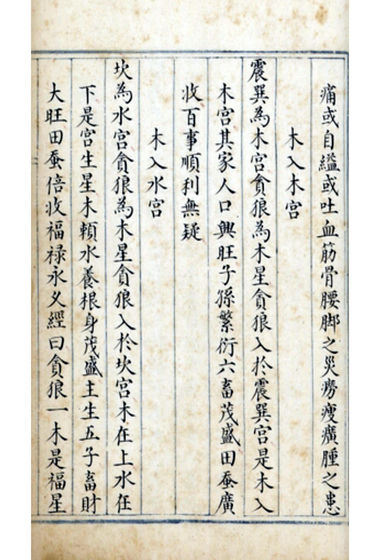 痛或自縊或吐血筋骨腰脚之災癆瘦癀腫之患
木入木宮
震巽為木宮貪狼為木星貪狼入於震巽宮是木入
木宮其家人口興旺子孫繁衍六畜茂盛田蚕廣
收百事順利無疑
木入水宮
坎為水宮貪狼為木星貪狼入於坎宮木在上水在
下是宮生星木頼水養根身茂盛主生五子畜財
大旺田蚕倍收福禄永久經曰貪狼一木是福星